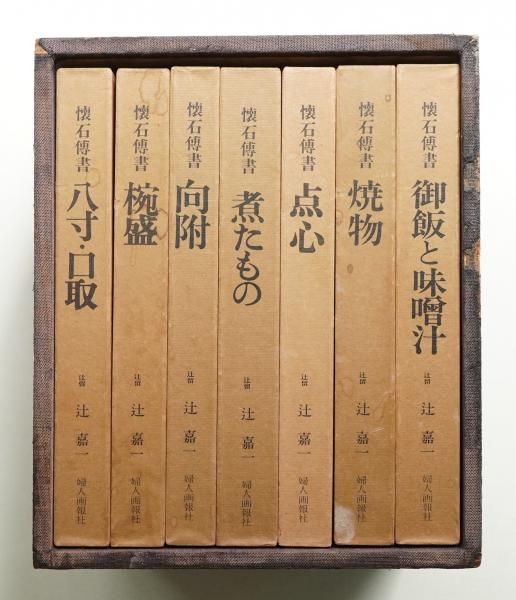 懐石傅書
御飯と味噌汁
辻留
辻 嘉一
婦人画報社
懐石傅書
焼物
辻留
辻 嘉一
婦人画報社
懐石傅書
点心
辻留
辻 嘉一
婦人画報社
懐石傅書
煮たもの
辻留
辻 嘉一
婦人画報社
懐石傅書
向附
辻留
辻 嘉一
婦人画報社
懐石傅書
椀盛
辻留
辻 嘉一
婦人画報社
懐石傅書
八寸・口取
辻留
辻 嘉一
婦人画報社